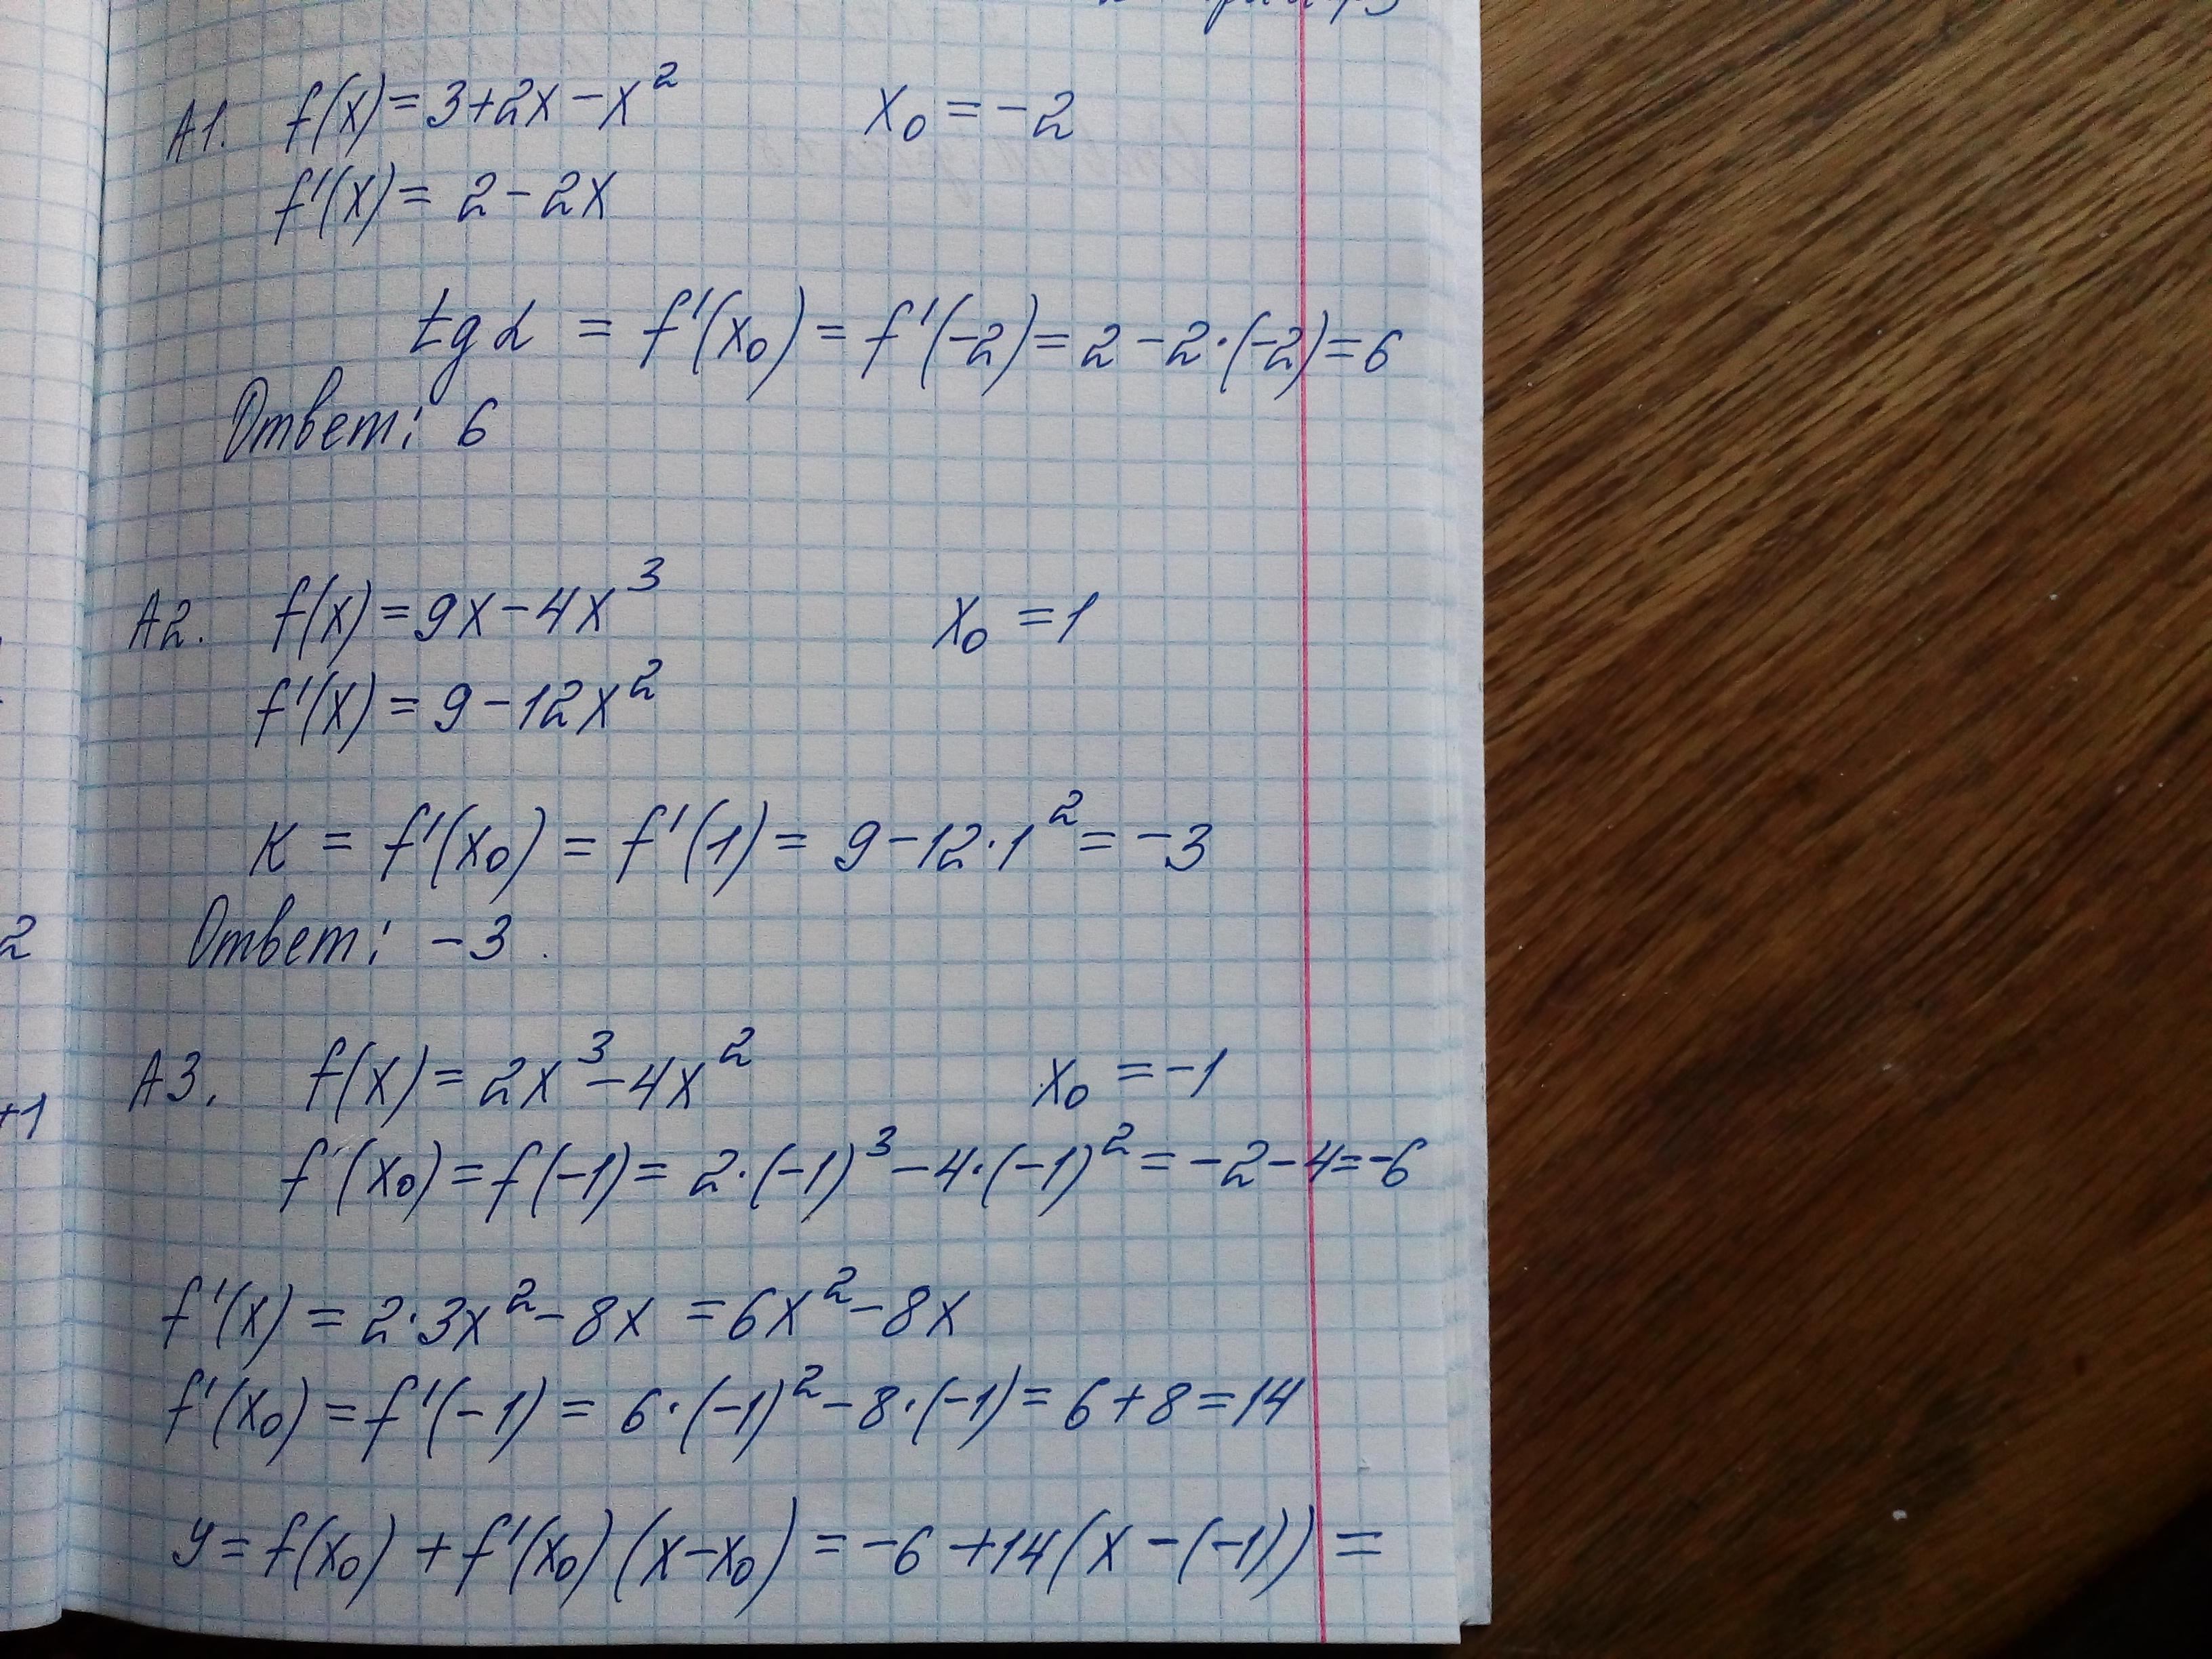 А1. f(x)=3+2x-x² x₀=-2
f'(x)=2-2x
tgα = f'(x₀)=f'(-2)=2-2·(-2)=6
Ответ: 6
А2. f(x)=9x-4x³ x₀=1
f'(x)=9-12x²
к = f'(x₀)=f'(1)=9-12·1²=-3
Ответ: -3.
2
А3. f(x)=2x³-4x² x₀=-1
+1
f'(x₀)=f(-1)=2·(-1)³-4·(-1)²=-2-4=-6
f'(x)=2·3x²-8x=6x²-8x
f'(x₀)=f'(-1)=6·(-1)²-8·(-1)=6+8=14
y=f(x₀)+f'(x₀)(x-x₀)=-6+14(x-(-1))=